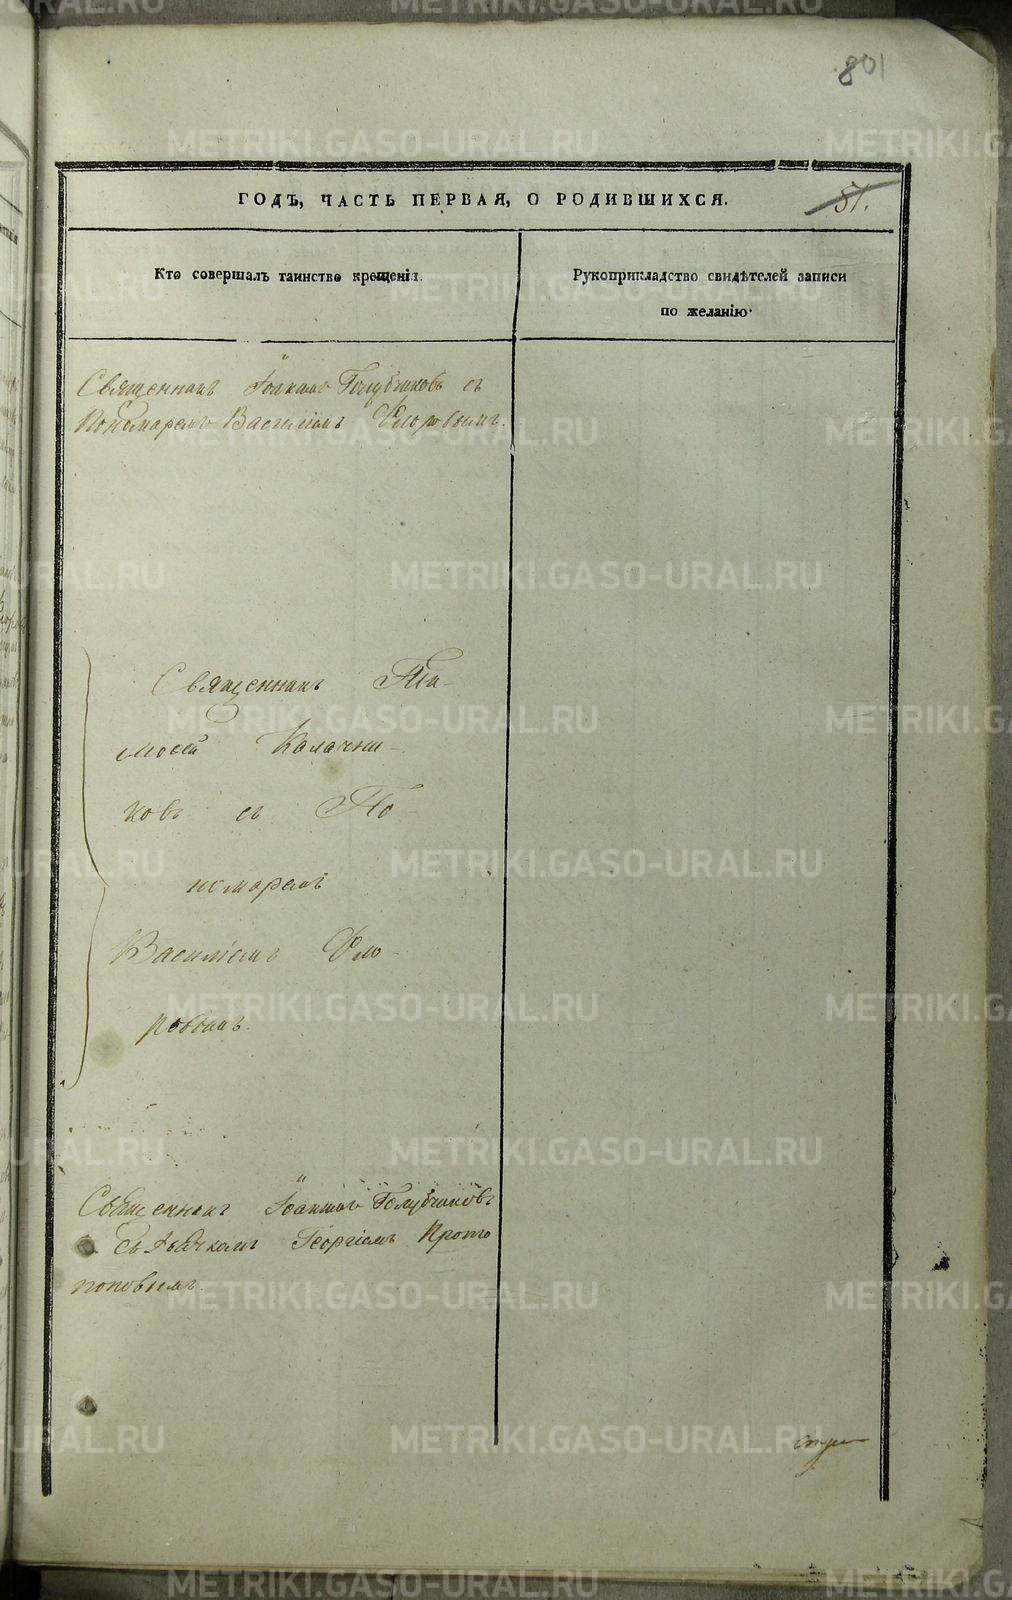 801
ГОДЪ, ЧАСТЬ ПЕРВАЯ, О РОДИВШИХСЯ.
51.
Кто совершалъ таинство крещенія.
Рукоприкладство свидѣтелей записи
по желанію.
Священникъ Іоакимъ Голубчиковъ съ
Пономаремъ Василіемъ Флоровымъ.
Священникъ Ти-
моѳей Калачни-
ковъ съ По-
номаремъ
Василіемъ Фло-
ровымъ.
Священникъ Іоакимъ Голубчиковъ
съ Дьячкомъ Георгіемъ Прото
поповымъ.
METRIKI.GASO-URAL.RU